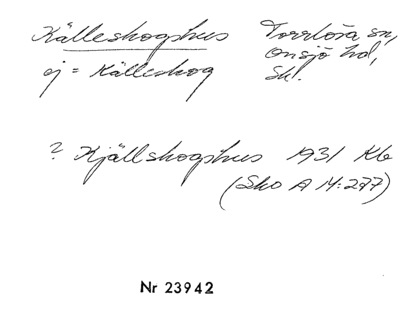 Källeskogshus Torrlösa sn,
Onsjö hd,
ej = Källeskog Sk.
? Kjällskogshus 1931 Kb
(Sko A 14:277)
Nr 23942